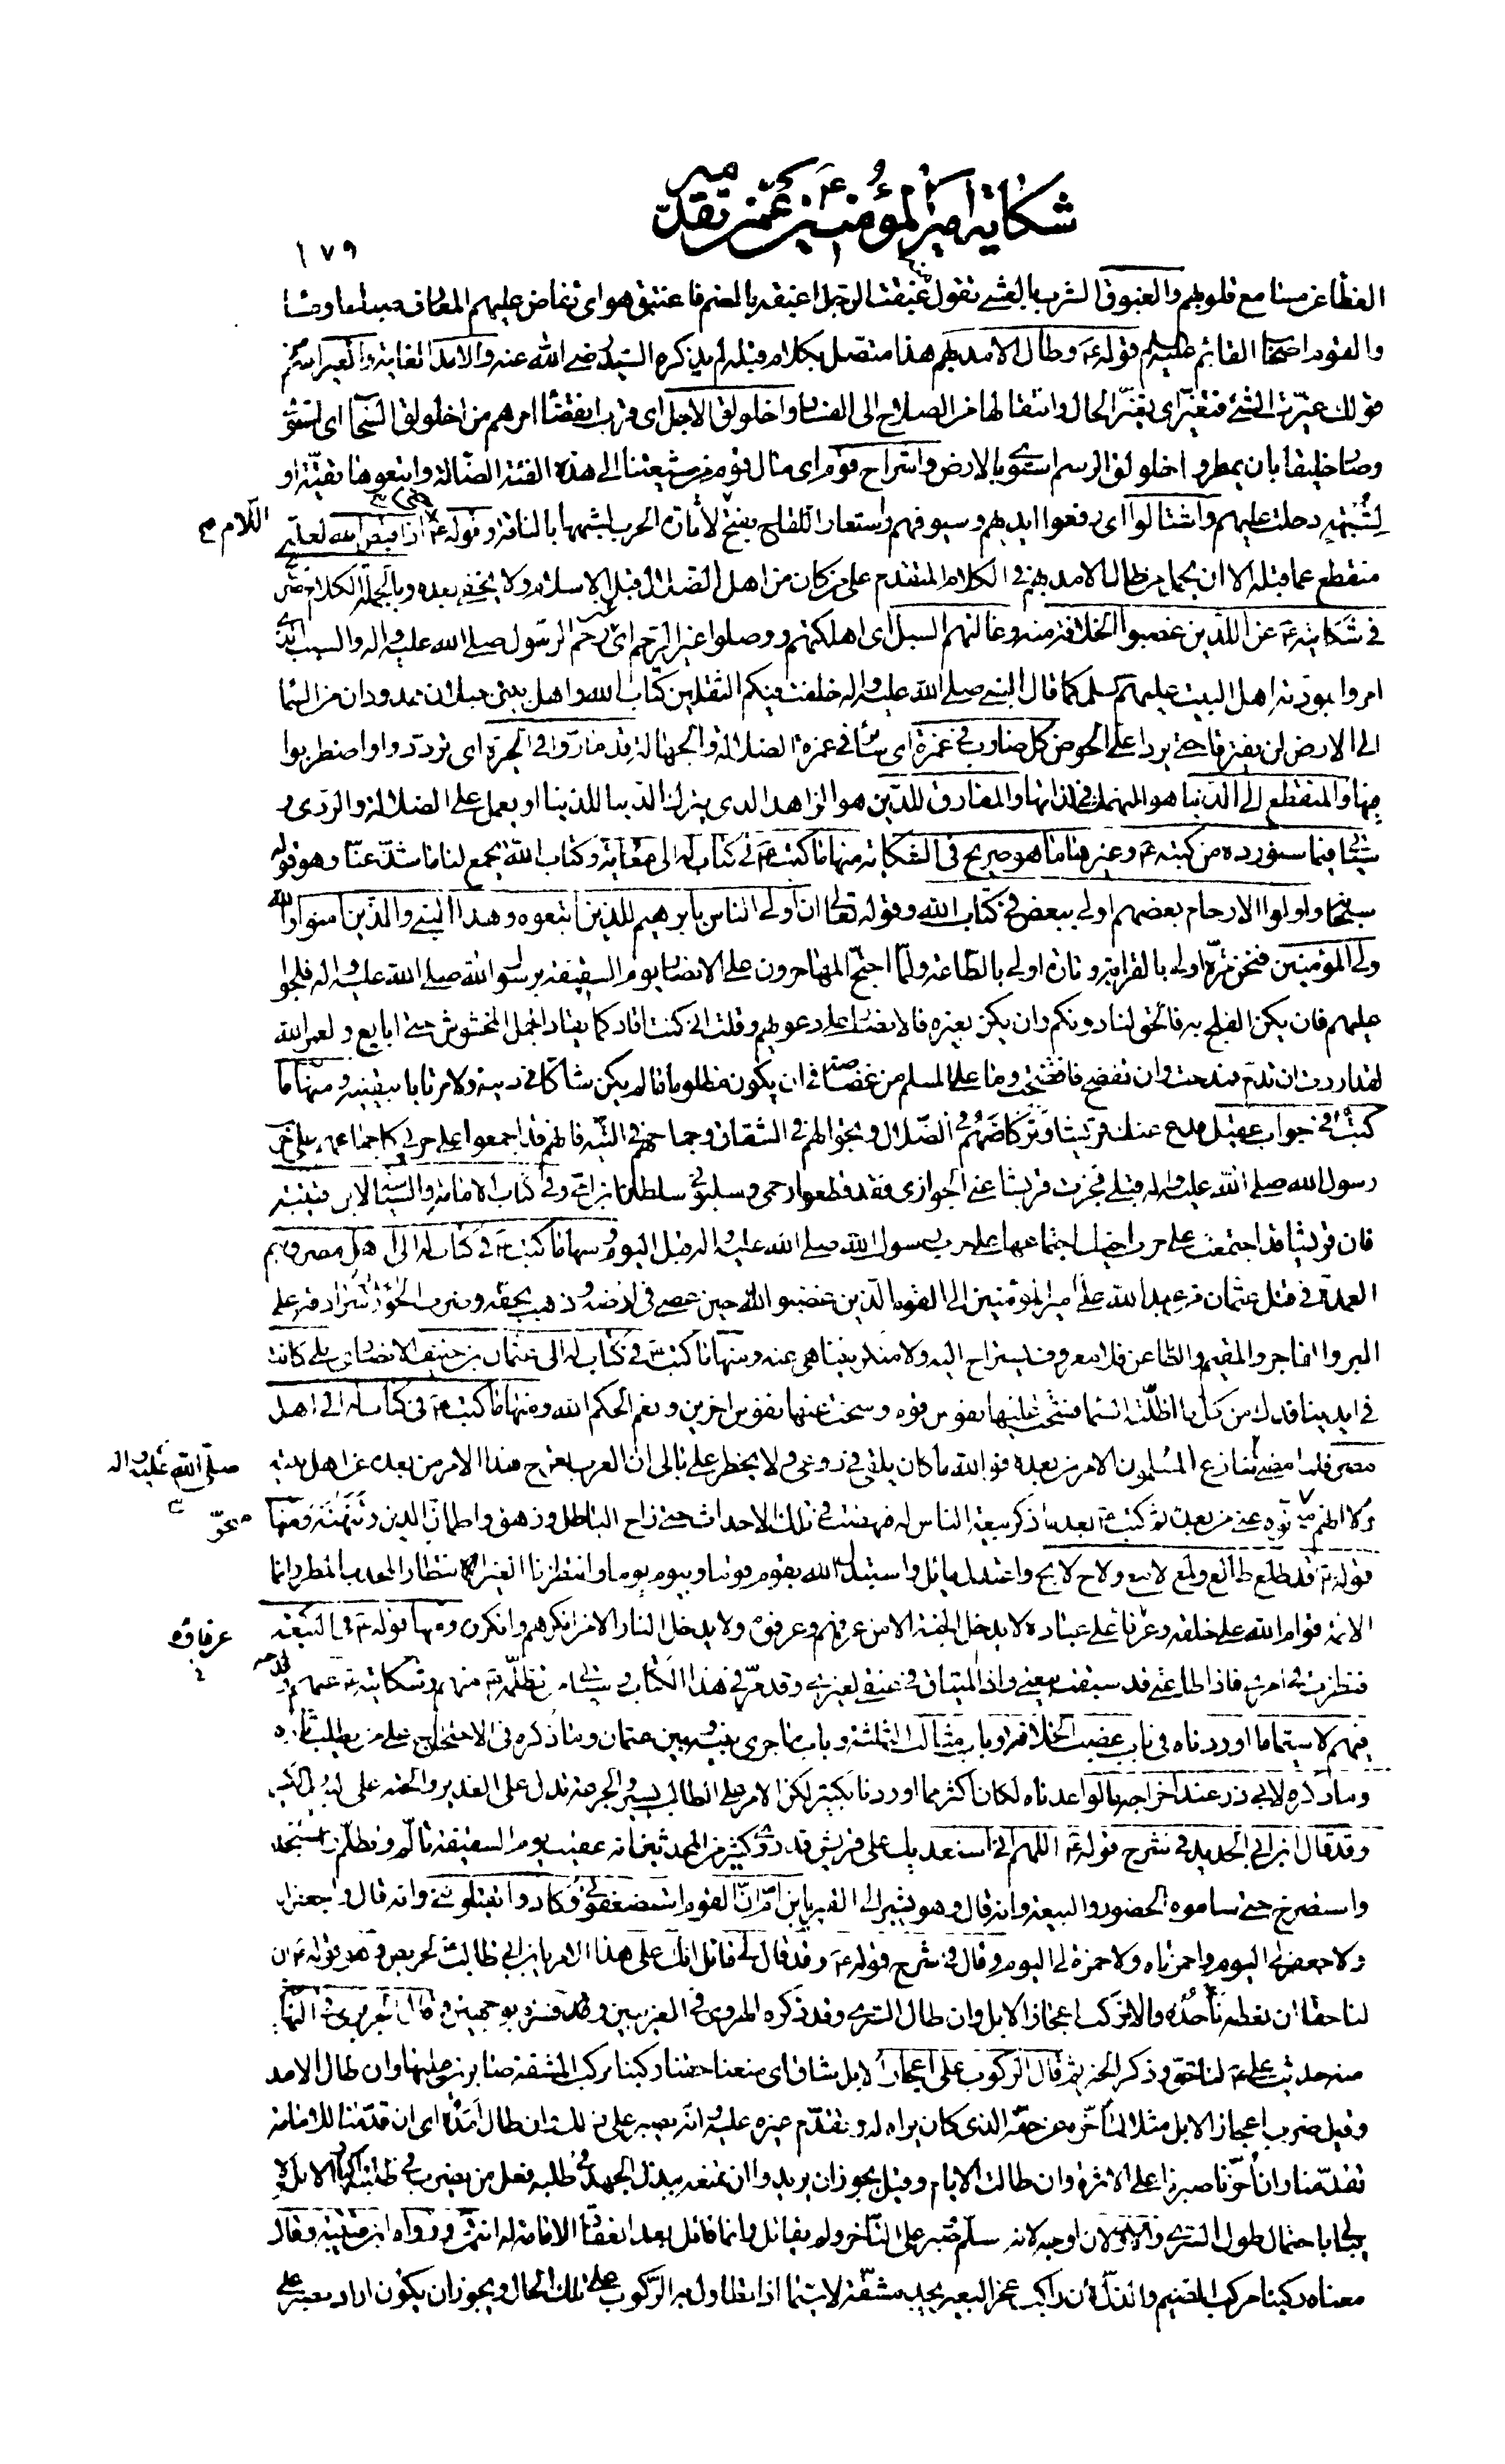 شكاية أمير المؤمنين ع عمن تقدمه
١٧٩
الغطا عن مع قلوبهم والغبوق الشرب بالعشي تقول غبقت الرجل اغبقه بالضم فاغتبق هو اي تفاض عليهم المعارف صباحا ومساء
والقوم اصحاب القائم عليه السلم قوله ع وطال الامد بهم هذا متصل بكلام قبله لم يذكره السيد رضي الله عنه والامد الغاية والغير اسم من
قولك غيرت الشيء فتغير اي تغير الحال وانتقالها من الصلاح الى الفساد واخلولق الاجل اي قرب انقضاء امرهم من اخلولق السحاب اي استوى
وصار خليقا بان يمطر واخلولق الرسم استوى بالارض واستراح قوم اي مال قوم من شيعتنا الى هذه الفئة الضالة واتبعوها تقية او
لشبهة دخلت عليهم واشتالوا اي رفعوا ايديهم وسيوفهم واستعار اللقاح بفتح اللام لاثارة الحرب لشبهها بالناقة وقوله ع حتى اذا قبض الله لعله
منقطع عما قبله الا ان يحمل من طال الامد بهم في الكلام المتقدم على من كان من اهل الضلال قبل الاسلام ولا يخفى بعده وبالجملة الكلام صريح
في شكايته ع عن الذين غصبوا الخلافة منه وغالتهم السبل اي اهلكتهم ووصلوا غير الرحم اي غير رحم الرسول صلى الله عليه واله والسبب الذي
امروا بمودته اهل البيت عليهم السلم كما قال النبي صلى الله عليه واله خلفت فيكم الثقلين كتاب الله واهل بيتي حبلان ممدودان من السماء
الى الارض لن يفترقا حتى يردا علي الحوض كل ضارب في غمرة اي سائر في غمرة الضلالة والجهالة قد ماروا في الحيرة اي ترددوا واضطربوا
فيها والمنقطع الى الدنيا هو المنهمك في لذاتها والمفارق للدين هو الزاهد الذي يترك الدنيا للدنيا او يعمل على الضلالة والردى و
سيأتي فيما سنورده من كتبه ع وغيرها ما هو صريح في الشكاية منها ما كتب ع في كتاب له الى معاوية وكتاب الله يجمع لنا ما شذ عنا وهو قوله
سبحانه واولوا الارحام بعضهم اولى ببعض في كتاب الله وقوله تعالى ان اولى الناس بابرهيم للذين اتبعوه وهذا النبي والذين امنوا والله
ولي المؤمنين فنحن مرة اولى بالقرابة وتارة اولى بالطاعة ولما احتج المهاجرون على الانصار يوم السقيفة برسول الله صلى الله عليه واله فلجوا
عليهم فان يكن الفلج به فالحق لنا دونكم وان يكن بغيره فالانصار على دعويهم وقلت اني كنت اقاد كما يقاد الجمل المخشوش حتى ابايع ولعمر الله
لقد اردت ان تذم فمدحت وان تفضح فافتضحت وما على المسلم من غضاضة في ان يكون مظلوما ما لم يكن شاكا في دينه ولا مرتابا بيقينه ومنها ما
كتب ع في جواب عقيل فدع عنك قريشا وتركاضهم في الضلال وتجوالهم في الشقاق وجماحهم في التيه فانهم قد اجمعوا على حربي كاجماعهم على حرب
رسول الله صلى الله عليه واله قبلي فجزت قريشا عني الجوازي فقد قطعوا رحمي وسلبوني سلطان ابن امي وفي كتاب الامامة والسياسة لابن قتيبة
فان قريشا قد اجتمعت على حرب اخيك اجتماعها على حرب رسول الله صلى الله عليه واله قبل اليوم ومنها ما كتب ع في كتاب له الى اهل مصر وهم
العمدة في قتل عثمان من عبد الله علي امير المؤمنين الى القوم الذين غضبوا لله حين عصي في ارضه وذهب بحقه وضرب الجور سرادقه على
البر والفاجر والمقيم والظاعن فلا معروف يستراح اليه ولا منكر يتناهى عنه ومنها ما كتب ع في كتاب له الى عثمان بن حنيف الانصاري بلى كانت
في ايدينا فدك من كل ما اظلته السماء فشحت عليها نفوس قوم وسخت عنها نفوس اخرين ونعم الحكم الله ومنها ما كتب ع في كتاب له الى اهل
مصر فلما مضى تنازع المسلمون الامر من بعده فوالله ما كان يلقى في روعي ولا يخطر على بالي ان العرب تزعج هذا الامر من بعده عن اهل بيته
ولا انهم منحوه عني من بعده ثم كتب ع بعد ما ذكر بيعة الناس له فنهضت في تلك الاحداث حتى زاح الباطل وزهق واطمان الدين وتنهنه ومنها
قوله ع قد طلع طالع ولمع لامع ولاح لايح واعتدل مائل واستبدل الله بقوم قوما وبيوم يوما وانتظرنا الغير انتظار المجدب المطر وانما
الائمة قوام الله على خلقه وعرفاؤه على عباده لا يدخل الجنة الا من عرفهم وعرفوه ولا يدخل النار الا من انكرهم وانكروه ومنها قوله ع في البيعة
فنظرت في امري فاذا طاعتي قد سبقت بيعتي واذا الميثاق في عنقي لغيري وقد مر في هذا الكتاب وسيأتي من تظلمه ع منهم وشكايته ع عنهم وقدحه
فيهم لا سيما ما اوردناه في باب غصب الخلافة وباب مثالب الثلثة وباب ما جرى بينه وبين عثمان وما ذكره في الاحتجاج على من يطلب ثاره
وما ذكره لابي ذر عند اخراجه ما لو اعدناه لكان اكثر مما اوردنا بكثير لكن الامر على الطالب يسير والجرعة تدل على الغدير والحفنة على
وقد قال ابن ابي الحديد في شرح قوله ع اللهم اني استعديك على قريش قد روى كثير من المحدثين انه عقيب يوم السقيفة تالم وتظلم واستنجد
واستصرخ حيث ساموه الحضور والبيعة وانه قال وهو يشير الى القبر يا بن ام ان القوم استضعفوني وكادوا يقتلونني وانه قال واجعفراه
ولا جعفر لي اليوم واحمزتاه ولا حمزة لي اليوم وقال في شرح قوله ع وقد قال لي قائل انك على هذا الامر يا بن ابي طالب لحريص وهو قوله ع ان
لنا حقا ان نعطه ناخذه والا نركب اعجاز الابل وان طال السرى وقد ذكره الهروي في الغريبين وفسره بوجهين وقال الجزري في النهاية
منه حديث علي ع لنا حق وذكر الخبر ثم قال الركوب على اعجاز الابل شاق اي ان منعنا حقنا ركبنا مركب المشقة صابرين عليها وان طال الامد
وقيل ضرب اعجاز الابل مثلا لتاخره عن حقه الذي كان يراه له وتقدم غيره عليه وانه يصبر على ذلك وان طال امده اي ان قدمنا للامامة
تقدمنا وان اخرنا صبرنا على الاثرة وان طالت الايام وقيل يجوز ان يريد وان نمنعه نبذل الجهد في طلبه فعل من يضرب في طلبته اكباد الابل ولا
يبالي باحتمال طول السرى والاولان اوجه لانه سلم وصبر على التاخر ولم يقاتل وانما قاتل بعد انعقاد الامامة له انتهى ورواه ابن قتيبة وقال
معناه ركبنا مركب الضيم والذل لان راكب عجز البعير يجد مشقة لا سيما اذا تطاول به الركوب على تلك الحال ويجوز ان يكون اراد نصبر على
اللام م
صلى الله عليه واله
منحو
عرفاؤه